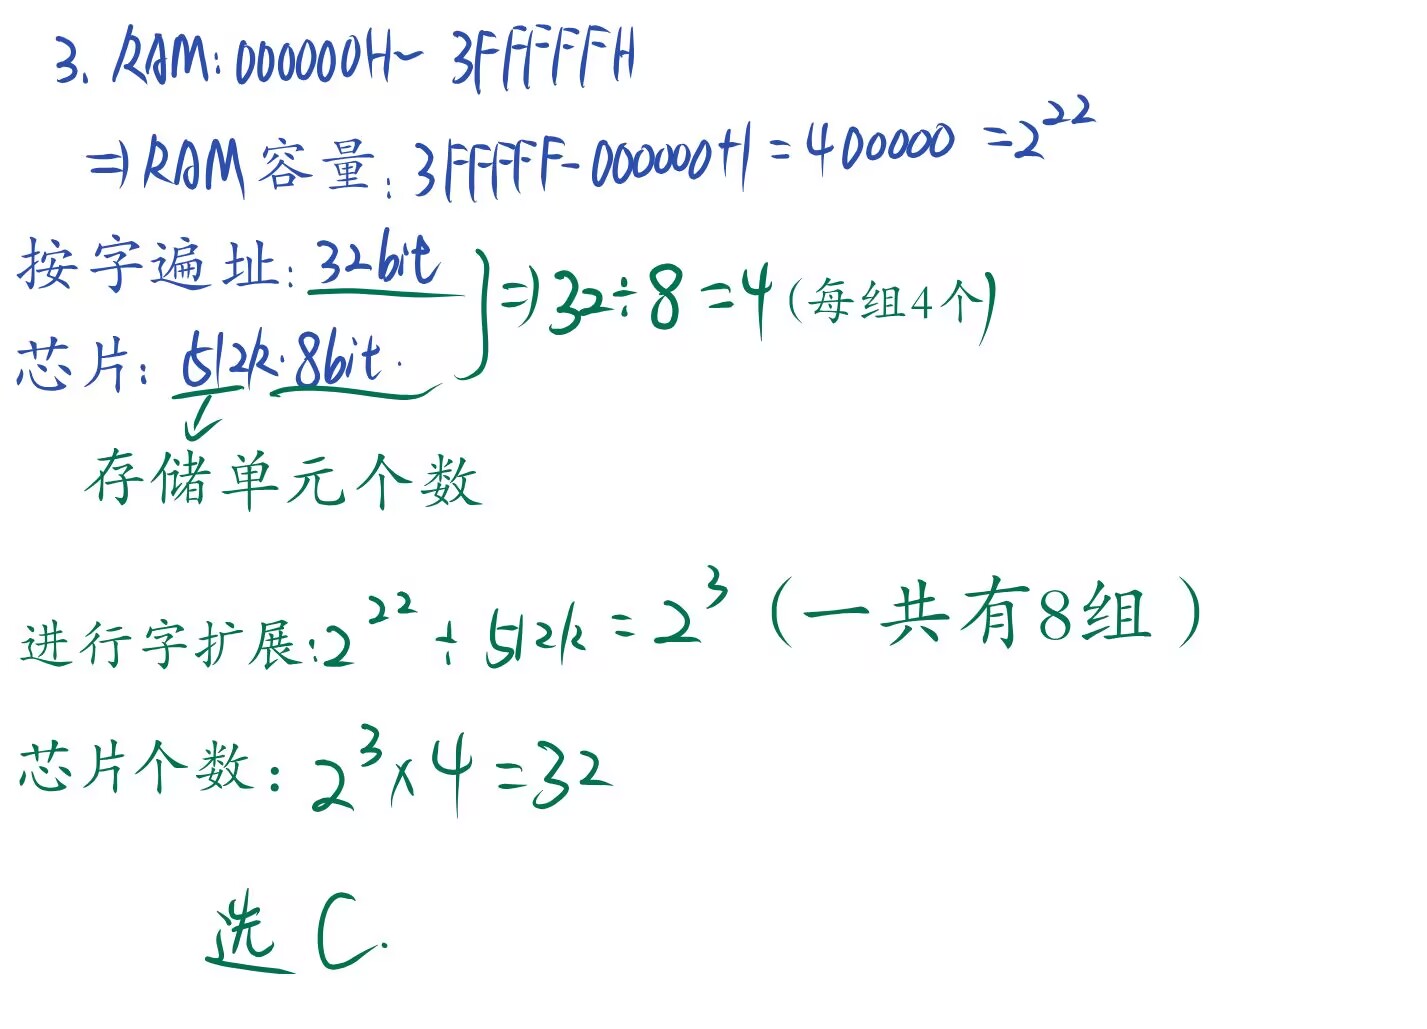 3. RAM: 000000H~ 3FFFFFH
⇒ RAM 容量: 3FFFFF-000000+1 = 400000 = 2^22
按字遍址: 32bit
⇒ 32÷8 = 4 (每组4个)
芯片: 512k·8bit.
存储单元个数
进行字扩展: 2^22 ÷ 512k = 2^3 (一共有8组)
芯片个数: 2^3 × 4 = 32
选 C.